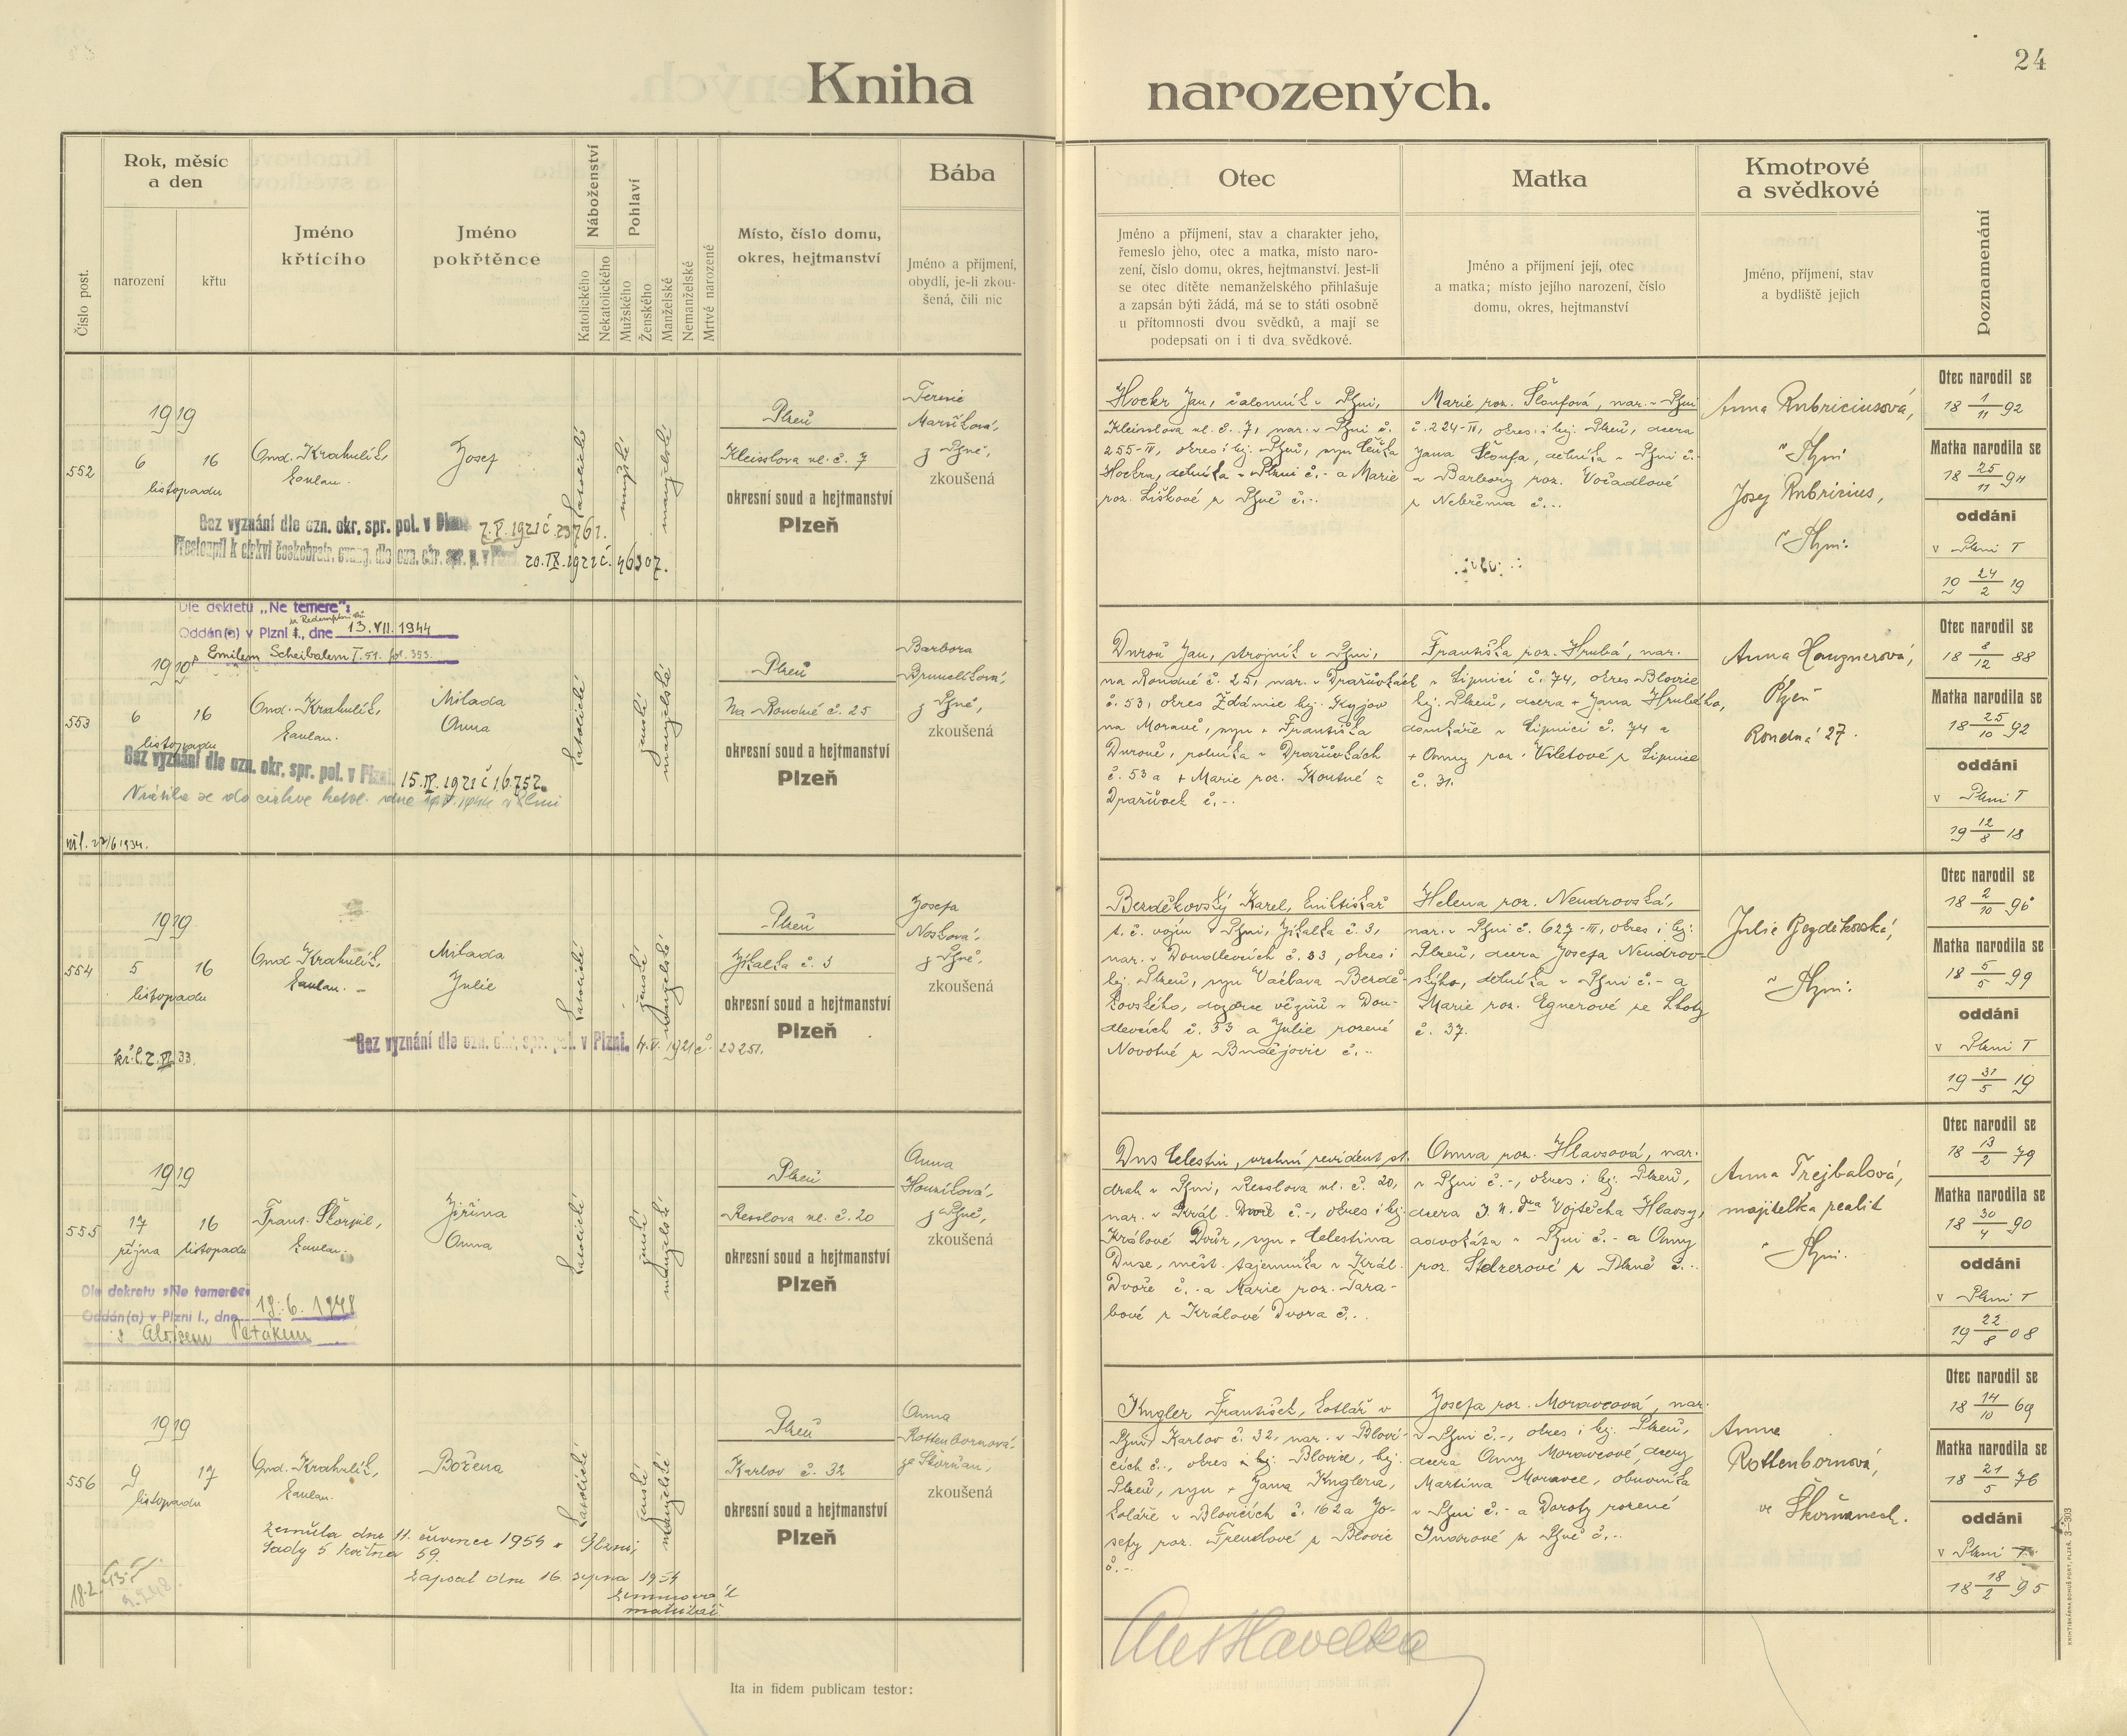 24
Kniha narozených.
Číslo post.
Rok, měsíc
a den
narození
křtu
Jméno
křtícího
Jméno
pokřtěnce
Náboženství
Katolického
Nekatolického
Pohlaví
Mužského
Ženského
Manželské
Nemanželské
Mrtvě narozené
Místo, číslo domu,
okres, hejtmanství
Bába
Jméno a příjmení,
obydlí, je-li zkou-
šená, čili nic
Otec
Jméno a příjmení, stav a charakter jeho,
řemeslo jeho, otec a matka, místo naro-
zení, číslo domu, okres, hejtmanství. Jest-li
se otec dítěte nemanželského přihlašuje
a zapsán býti žádá, má se to státi osobně
u přítomnosti dvou svědků, a mají se
podepsati on i ti dva svědkové.
Matka
Jméno a příjmení její, otec
a matka; místo jejího narození, číslo
domu, okres, hejtmanství
Kmotrové
a svědkové
Jméno, příjmení, stav
a bydliště jejich
Poznamenání
552
1919
6 16
listopadu
Ond. Krahulík,
kaplan.
Josef
katolické
mužské
manželské
Plzeň
Kleisslova ul. č. 7
okresní soud a hejtmanství
Plzeň
Terezie
Maršíková,
z Plzně,
zkoušená
Bez vyznání dle ozn. okr. spr. pol. v Plzni 7.V.1921 č. 23761.
Přestoupil k církvi českobratr. evang. dle ozn. okr. spr. p. v Plzni 20.IX.1921 č. 46307.
Hockr Jan, čalouník v Plzni,
Kleisslova ul. č. 7, nar. v Plzni č.
255-II, okres i hej. Plzeň, syn
Hockra, dělníka v Plzni č.- a Marie
roz. Liškové z Plzně č.-.
Marie roz. Šloufová, nar. v Plzni
č. 224-II, okres i hej. Plzeň, dcera
Jana Šloufa, dělníka v Plzni č.-
a Barbory roz. Vořadlové
z Nebřema č.-.
Anna Rubriciusová,
v Plzni
Josef Rubricius,
v Plzni.
Otec narodil se
18 1/11 92
Matka narodila se
18 25/11 94
oddáni
v Plzni I
19 24/2 19
553
Dle dekretu „Ne temere":
Oddán(a) v Plzni I., dne 13.VII.1944
s Emilem Scheibalem I.51. fol. 353.
1919
6 16
listopadu
Ond. Krahulík,
kaplan.
Milada
Anna
katolické
ženské
manželské
Plzeň
Na Roudné č. 25
okresní soud a hejtmanství
Plzeň
Barbora
Brunclíková,
z Plzně,
zkoušená
Bez vyznání dle ozn. okr. spr. pol. v Plzni 15.IV.1921 č. 16752.
Vrátila se do církve katol. dne v Plzni
Duroň Jan, strojník v Plzni,
na Roudné č. 25, nar. v Dražůvkách
č. 53, okres Ždánice hej. Kyjov
na Moravě, syn + Františka
Duroně, rolníka v Dražůvkách
č. 53 a + Marie roz. Koutné z
Dražůvek č.-.
Františka roz. Hrubá, nar.
v Lipnici č. 74, okres Blovice
hej. Plzeň, dcera + Jana Hrubého,
domkáře v Lipnici č. 74 a
+ Anny roz. Viletové z Lipnice
č. 31.
Anna Hauznerová,
Plzeň
Roudná 27.
Otec narodil se
18 8/12 88
Matka narodila se
18 25/10 92
oddáni
v Plzni I
19 12/8 18
554
1919
5 16
listopadu
Ond. Krahulík,
kaplan.
Milada
Julie
katolické
ženské
manželské
Plzeň
Jikalka č. 3
okresní soud a hejtmanství
Plzeň
Josefa
Nosková,
z Plzně,
zkoušená
Bez vyznání dle ozn. okr. spr. pol. v Plzni. 4.V.1921 č. 23251.
Bezděkovský Karel,
t. č. vojín v Plzni, Jikalka č. 3,
nar. v Doudlevcích č. 33, okres i
hej. Plzeň, syn Václava Bezdě-
kovského, dozorce vězňů v Dou-
dlevcích č. 33 a Julie rozené
Novotné z Budějovic č.-.
Helena roz. Neudrovská,
nar. v Plzni č. 627-III, okres i hej.
Plzeň, dcera Josefa Neudrov-
ského, dělníka v Plzni č.- a
Marie roz. Egnerové ze Lhoty
č. 37.
Julie Bezděkovská,
v Plzni.
Otec narodil se
18 2/10 96
Matka narodila se
18 5/5 99
oddáni
v Plzni I
19 31/5 19
555
1919
17 16
října listopadu
Frant. Škorpil,
kaplan.
Jiřina
Anna
katolické
ženské
manželské
Plzeň
Resslova ul. č. 20
okresní soud a hejtmanství
Plzeň
Anna
Houzíková,
z Plzně,
zkoušená
Dle dekretu »Ne temere«
Oddán(a) v Plzni I., dne 18.6.1948
s Aloisem Petákem
Dus Celestin, vrchní revident st.
drah v Plzni, Resslova ul. č. 20,
nar. v Král. Dvoře č.-, okres i hej.
Králové Dvůr, syn + Celestina
Duse, měst. tajemníka v Král.
Dvoře č.- a Marie roz. Tara-
bové z Králové Dvora č.-.
Anna roz. Hlavsová, nar.
v Plzni č.-, okres i hej. Plzeň,
dcera J. U. Dra Vojtěcha Hlavsy,
advokáta v Plzni č.- a Anny
roz. Stelzerové z Plzně č.-.
Anna Trejbalová,
majitelka realit
v Plzni.
Otec narodil se
18 13/2 79
Matka narodila se
18 30/4 90
oddáni
v Plzni I
19 22/8 08
556
1919
9 17
listopadu
Ond. Krahulík,
kaplan.
Božena
katolické
ženské
manželské
Plzeň
Karlov č. 32
okresní soud a hejtmanství
Plzeň
Anna
Rottenbornová,
ze Skvrňan,
zkoušená
Zemřela dne 11. července 1954 v Plzni,
Sady 5 května 59.
Zapsal dne 16. srpna 1954
matrikář
Kugler František, kotlář v
Plzni, Karlov č. 32, nar. v Blovi-
cích č.-, okres i hej. Blovice, hej.
Plzeň, syn + Jana Kuglera,
koláře v Blovicích č. 162 a Jo-
sefy roz. Trendlové z Blovic
č.-.
Josefa roz. Moravcová, nar.
v Plzni č.-, okres i hej. Plzeň,
dcera Anny Moravcové, dcery
Martina Moravce, obuvníka
v Plzni č.- a Doroty rozené
Indrové z Plzně č.-.
Anna
Rottenbornová,
ve Skvrňanech.
Otec narodil se
18 14/10 69
Matka narodila se
18 21/5 76
oddáni
v Plzni
18 18/2 95
Ita in fidem publicam testor:
KNIHTISKÁRNA BOHUŠ PORT, PLZEŇ. 3—303